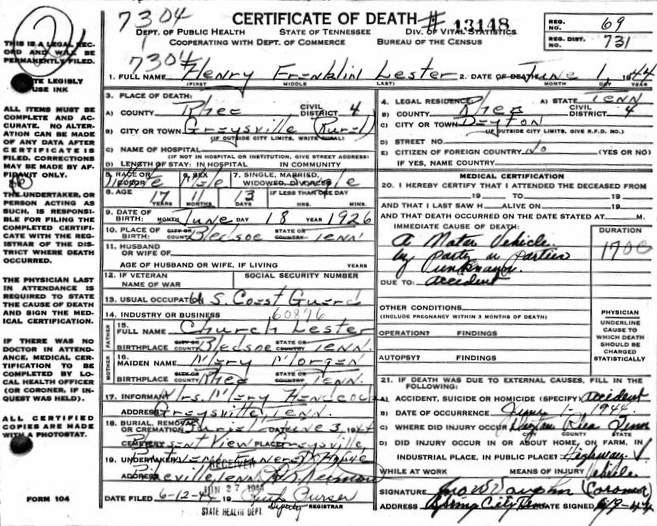 7304
CERTIFICATE OF DEATH # 13148
DEPT. OF PUBLIC HEALTH STATE OF TENNESSEE DIV. OF VITAL STATISTICS
COOPERATING WITH DEPT. OF COMMERCE BUREAU OF THE CENSUS
REG. NO. 69
REG. DIST. 731
7304
THIS IS A LEGAL RECORD AND WILL BE PERMANENTLY FILED.
WRITE LEGIBLY
USE INK
ALL ITEMS MUST BE COMPLETE AND ACCURATE. NO ALTERATION CAN BE MADE OF ANY DATA AFTER CERTIFICATE IS FILED. CORRECTIONS MAY BE MADE BY AFFIDAVIT ONLY.
THE UNDERTAKER, OR PERSON ACTING AS SUCH, IS RESPONSIBLE FOR FILING THE COMPLETED CERTIFICATE WITH THE REGISTRAR OF THE DISTRICT WHERE DEATH OCCURRED.
THE PHYSICIAN LAST IN ATTENDANCE IS REQUIRED TO STATE THE CAUSE OF DEATH AND SIGN THE MEDICAL CERTIFICATION.
IF THERE WAS NO DOCTOR IN ATTENDANCE, MEDICAL CERTIFICATION TO BE COMPLETED BY LOCAL HEALTH OFFICER (OR CORONER, IF INQUEST WAS HELD).
ALL CERTIFIED COPIES ARE MADE WITH A PHOTOSTAT.
FORM 104
1. FULL NAME Henry Franklin Lester 2. DATE OF DEATH June 1 1944
(FIRST) MIDDLE (LAST) MONTH DAY YEAR
3. PLACE OF DEATH:
A) COUNTY Rhea CIVIL DISTRICT 4
B) CITY OR TOWN Graysville (Rural)
(IF OUTSIDE CITY LIMITS, WRITE RURAL)
C) NAME OF HOSPITAL
(IF NOT IN HOSPITAL OR INSTITUTION, GIVE STREET ADDRESS)
D) LENGTH OF STAY: IN HOSPITAL IN COMMUNITY
4. LEGAL RESIDENCE: A) STATE Tenn
B) COUNTY Rhea CIVIL DISTRICT 4
C) CITY OR TOWN Dayton
(IF OUTSIDE CITY LIMITS, GIVE R.F.D. NO.)
D) STREET NO.
E) CITIZEN OF FOREIGN COUNTRY No (YES OR NO)
IF YES, NAME COUNTRY
5. RACE OR COLOR White 6. SEX Male 7. SINGLE, MARRIED, WIDOWED, DIVORCED Single
8. AGE 17 13 IF LESS THAN ONE DAY
YEARS MONTHS DAYS HRS. MINS.
9. DATE OF BIRTH: MONTH June DAY 18 YEAR 1926
10. PLACE OF BIRTH CITY OR COUNTY Bledsoe STATE OR COUNTRY Tenn
11. HUSBAND OR WIFE OF
AGE OF HUSBAND OR WIFE, IF LIVING YEARS
12. IF VETERAN NAME OF WAR SOCIAL SECURITY NUMBER
13. USUAL OCCUPATION U S. Coast Guard
14. INDUSTRY OR BUSINESS 60876
FATHER 15. FULL NAME Church Lester
BIRTHPLACE CITY OR COUNTY Bledsoe STATE OR COUNTRY Tenn
MOTHER 16. MAIDEN NAME Mary Morgan
BIRTHPLACE CITY OR COUNTY Rhea STATE OR COUNTRY Tenn.
17. INFORMANT Mrs. Mary
ADDRESS Graysville, Tenn.
18. BURIAL, REMOVAL OR CREMATION Burial June 3, 1944
CEMETERY Pleasant View PLACE Graysville
19. UNDERTAKER Funeral Home
Pikeville Tenn
RECEIVED
JUN 27 1944
STATE HEALTH DEPT.
DATE FILED 6-12-44 Deputy REGISTRAR
MEDICAL CERTIFICATION
20. I HEREBY CERTIFY THAT I ATTENDED THE DECEASED FROM
19 TO 19
I LAST SAW H ALIVE ON 19
AND THAT DEATH OCCURRED ON THE DATE STATED AT M.
IMMEDIATE CAUSE OF DEATH: DURATION
A Motor Vehicle 1700
by party or parties
unknown.
DUE TO: accident
OTHER CONDITIONS:
(INCLUDE PREGNANCY WITHIN 3 MONTHS OF DEATH)
OPERATION? FINDINGS
AUTOPSY? FINDINGS
PHYSICIAN
UNDERLINE CAUSE TO WHICH DEATH SHOULD BE CHARGED STATISTICALLY
21. IF DEATH WAS DUE TO EXTERNAL CAUSES, FILL IN THE FOLLOWING:
A) ACCIDENT, SUICIDE OR HOMICIDE (SPECIFY) accident
B) DATE OF OCCURRENCE June 1 - 1944
C) WHERE DID INJURY OCCUR Dayton Rhea Tenn
D) DID INJURY OCCUR IN OR ABOUT HOME, ON FARM, IN
INDUSTRIAL PLACE, IN PUBLIC PLACE? Highway
WHILE AT WORK MEANS OF INJURY Vehicle
SIGNATURE Vaughn (Coroner)
ADDRESS Spring City Tenn DATE SIGNED 6-9-44